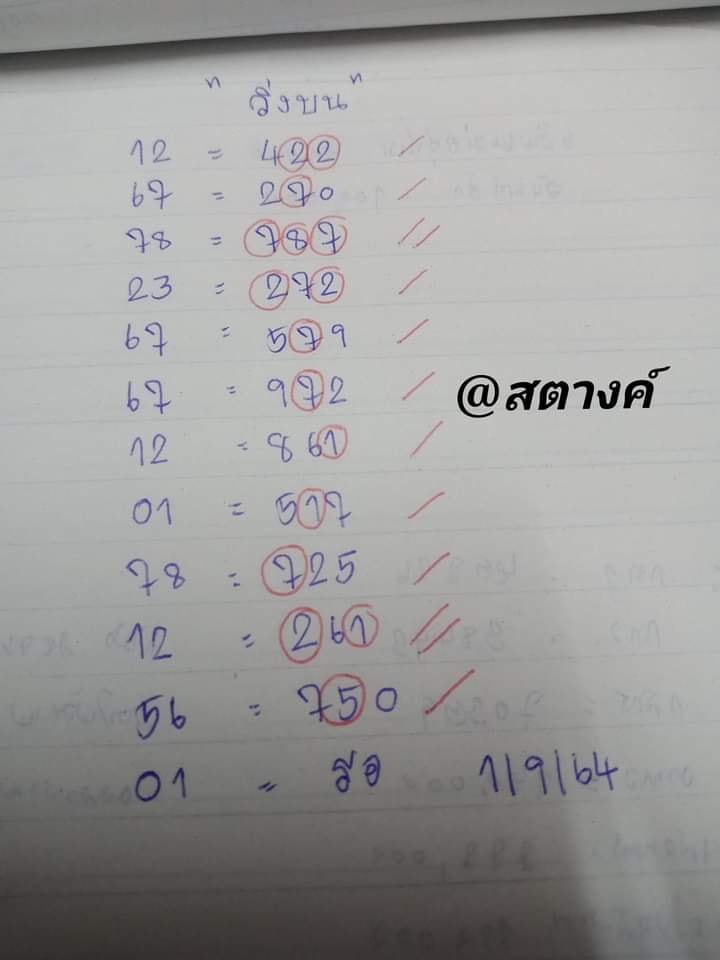 " วิ่งบน "
12 = 422
67 = 270
78 = 787
23 = 272
67 = 579
67 = 972
@สตางค์
12 = 861
01 = 517
78 = 725
12 = 261
56 = 750
01 = รอ 1/9/64